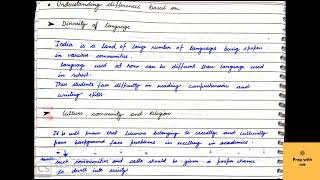 • Understanding differences based on
➤ Diversity of language
India is a land of large number of languages being spoken
in various communities.
Language used at home can be different than language used
in school.
Thus students face difficulty in reading comprehension and
writing skills
➤ Culture, community and Religion
It is well known that learners belonging to socially and culturally
poor background face problems in excelling in academics.
such communities and caste should be given a proper chance
to dwell into society
Prep with
me
CS